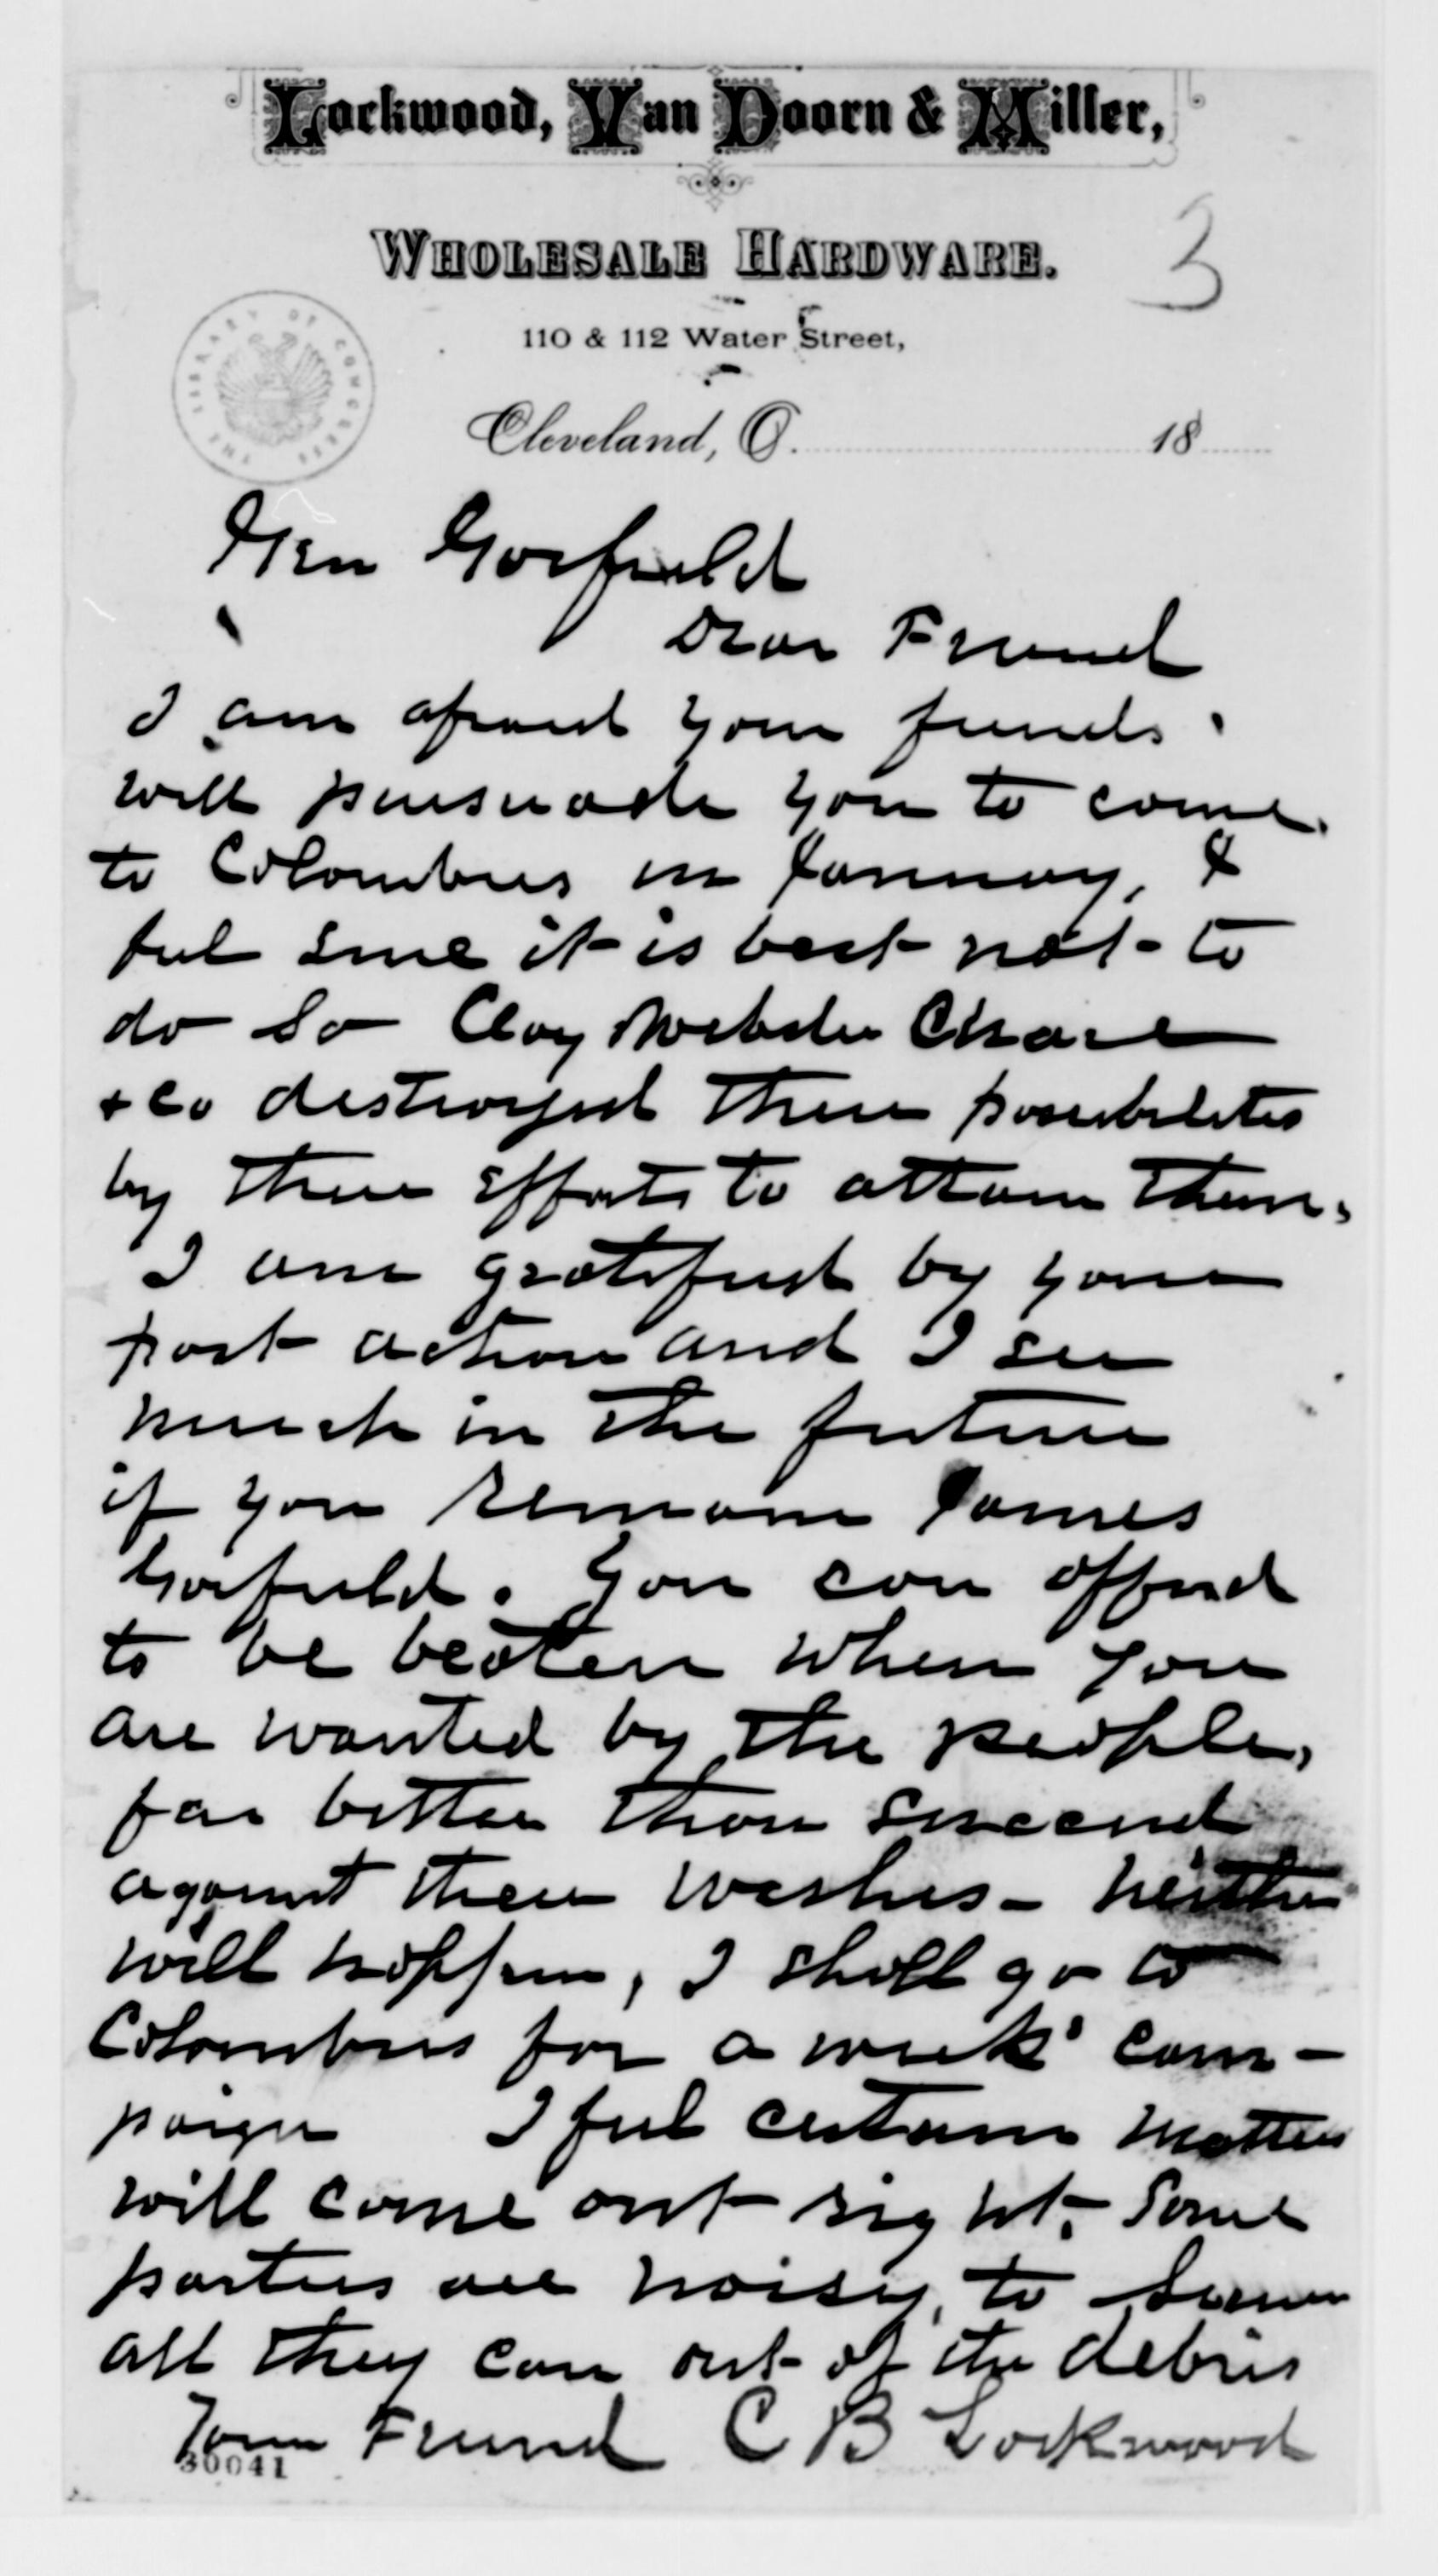 Lockwood, Van Doorn & Miller,
WHOLESALE HARDWARE.
3
110 & 112 Water Street,
THE LIBRARY OF CONGRESS
Cleveland, O. 18
Gen Garfield
Dear Friend
I am afraid your friends
will pursuade you to come
to Colombus in January, &
feel sure it is best not to
do so Clay Webster Chase
& Co destroyed their possibilities
by their efforts to attain them.
I am gratified by your
past action and I see
much in the future
if you remain James
Garfield. You can afford
to be beaten when you
are wanted by the people,
far better than succeed
against their wishes - neither
will happen, I shall go to
Colombus for a week's cam-
paign I feel certain matters
will come out right. Some
parties are noisy, to
all they can out of the debris
Your Friend C B Lockwood
30041